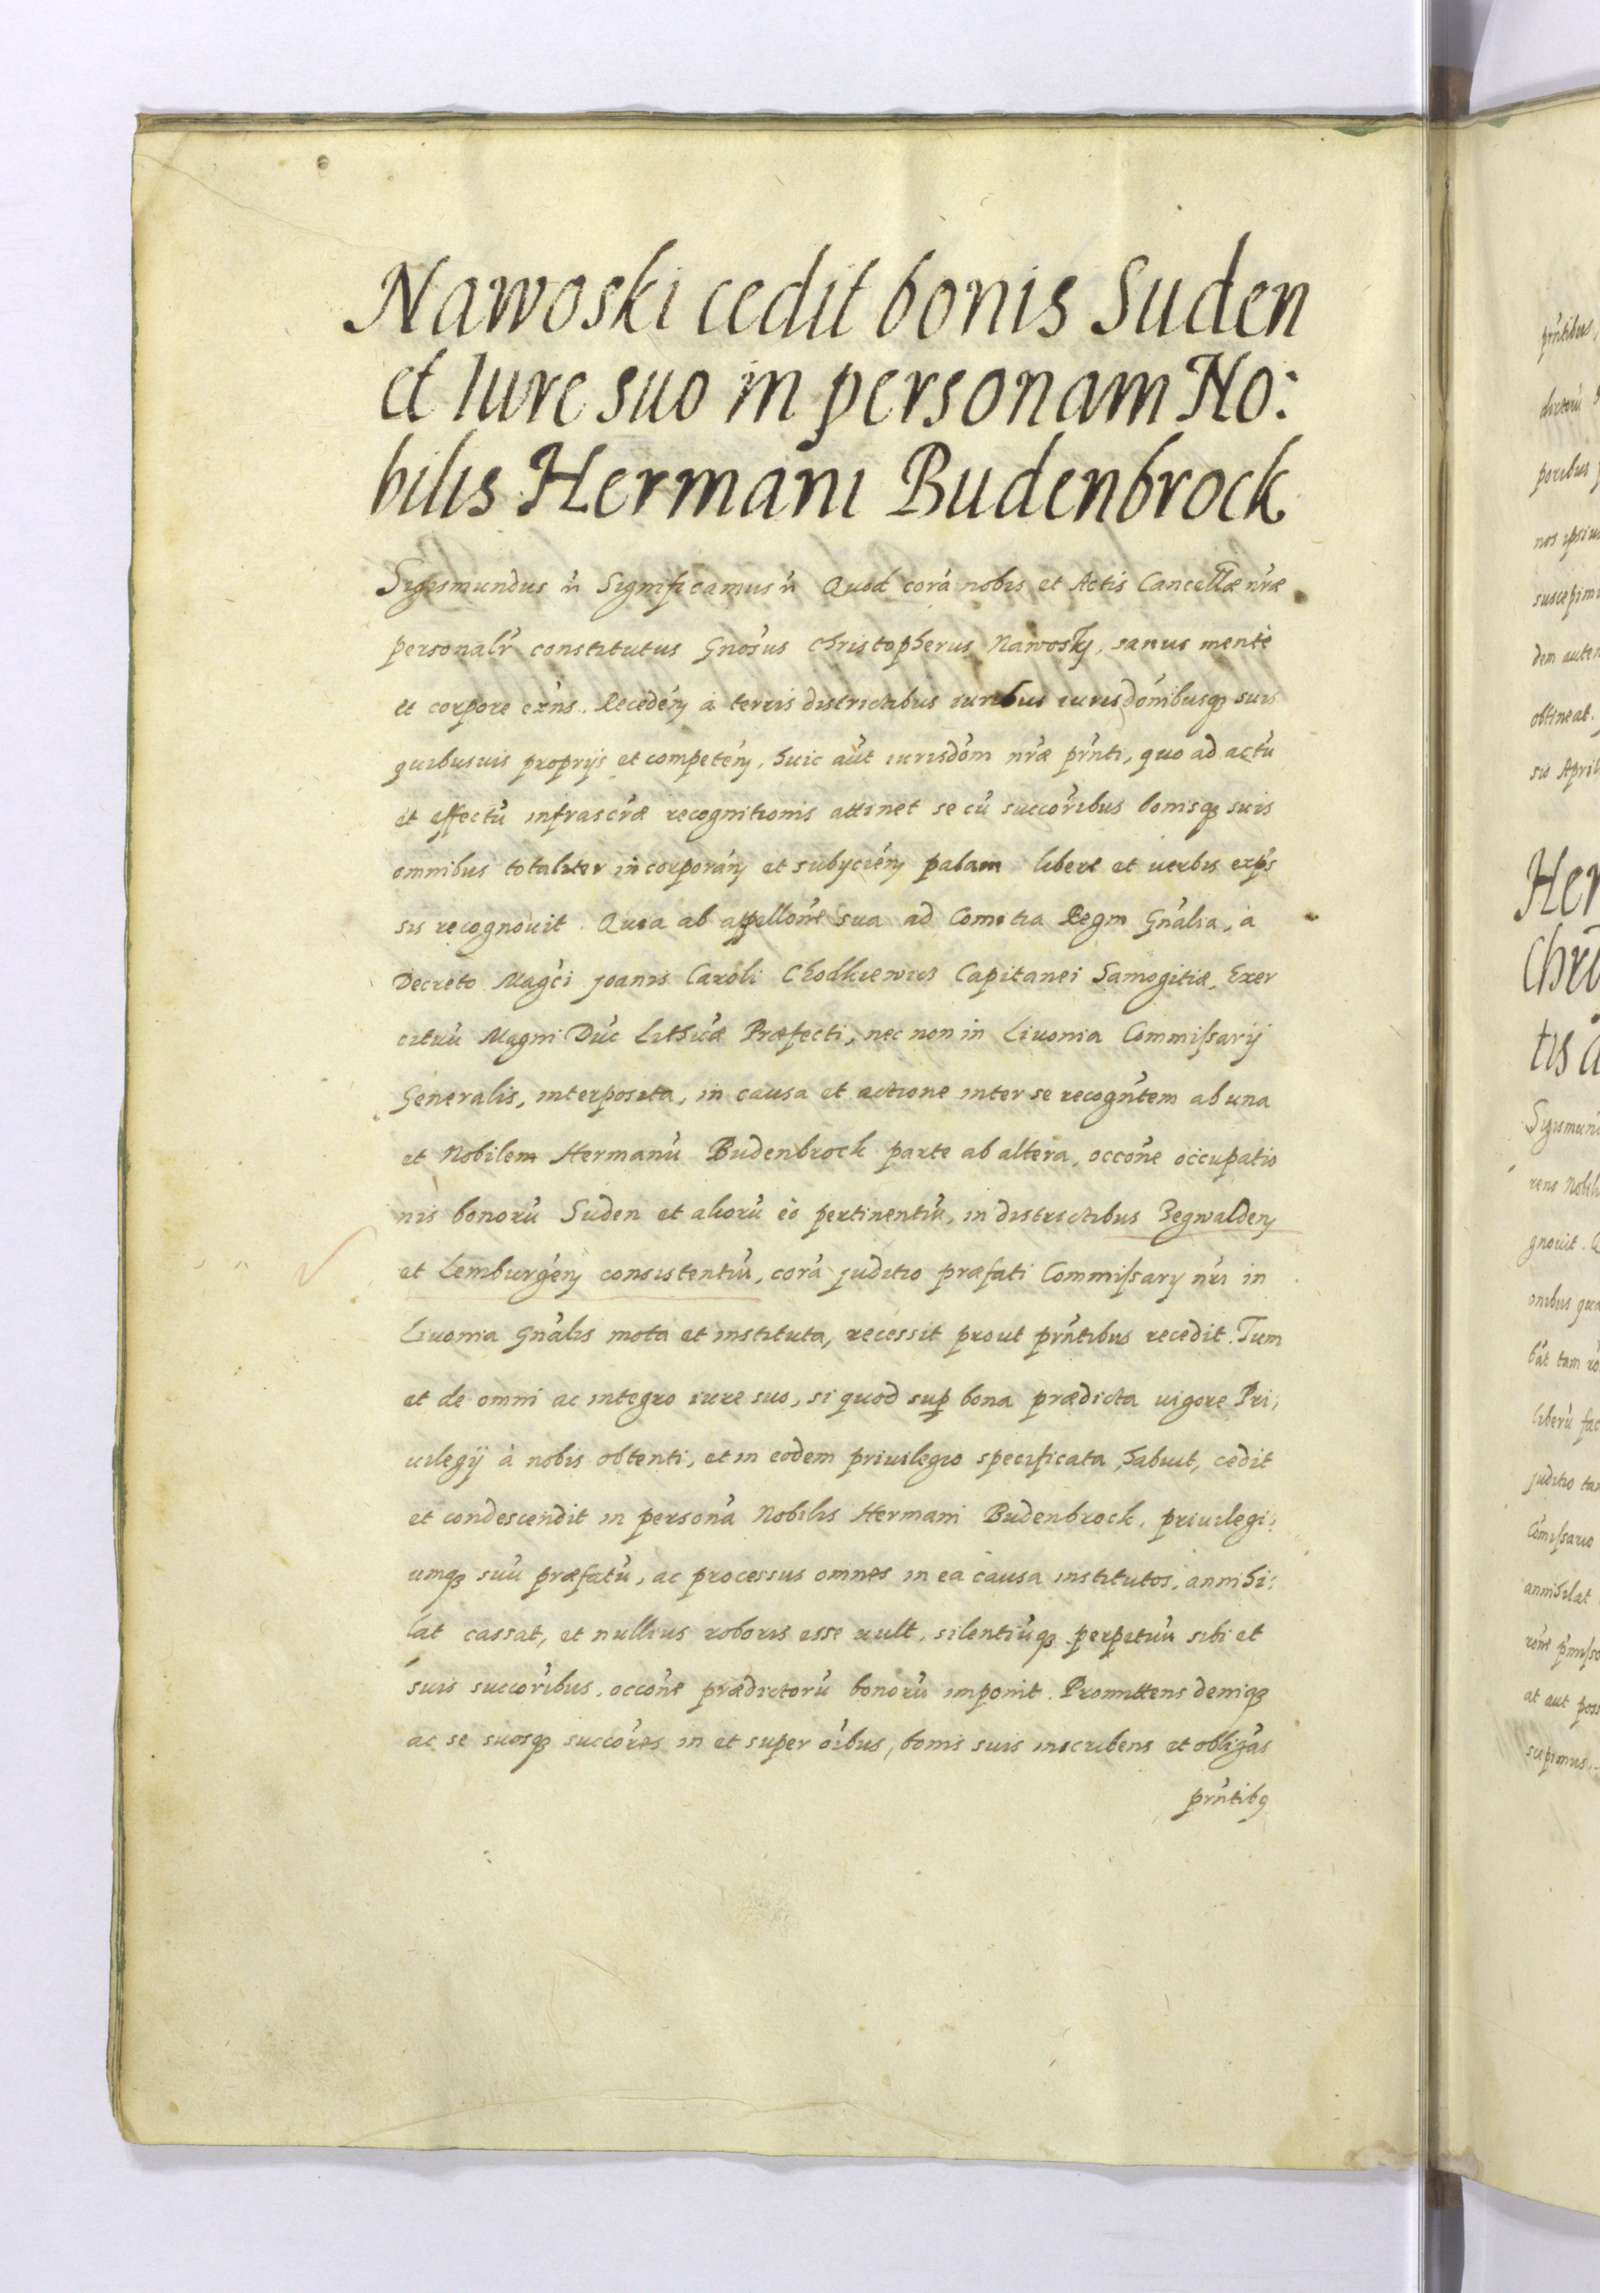 Nawoski cedit bonis Suden
et Iure suo in personam No:
bilis Hermani Budenbrock
Sigismundus Significamus Quod corá nobis et Actis Cancellæ nr̃æ
personalr̃ constitutus Gnosus Christopherus Nawosky, sanus mente
et corpore exñs. Recedeń à terris districtibus iuribus iurisdonibusq suis
quibusuis proprijs et competeń, huic aut iurisdom nr̃æ prñti, quo ad actũ
et effectũ infrascr̃æ recognitionis attinet se cũ succoribus bonisq suis
omnibus totaliter incorporań et subycień palam libere et uerbis exp̃s
sis recognouit. Quia ab appellone sua ad Comitia Regni Gnalia, a
Decreto Magci Joanis Caroli Chodkiewics Capitanei Samogitiæ, Exer
cituũ Magni Duc Lithuæ Præfecti, nec non in Liuonia Commissarij
Generalis, interposita, in causa et actione inter se recogntem ab una
et Nobilem Hermanũ Budenbrock parte ab altera, occone occupatio
nis bonorũ Suden et aliorũ eò pertinentiũ, in districtibus Zegwaldeń
et Lemburgeń consistentiũ, corá juditio præfati Commissary nr̃i in
Liuonia Gnalis mota et instituta, recessit prout prñtibus recedit. Tum
et de omni ac integro iure suo, si quod sup bona prædicta uigore Pri;
uilegij à nobis obtenti, et in eodem priuilegio specificata habuit, cedit
et condescendit in persona Nobilis Hermani Budenbrock, priuilegi:
umq suũ præfatũ, ac processus omnes in ea causa institutos, annihi:
lat cassat, et nullius roboris esse uult, silentiũq perpetuũ sibi et
suis succoribus, occone prædictorũ bonorũ imponit. Promittens deniq
ac se suosq succores in et super oibus, bonis suis inscribens et obligãs
prñtib9